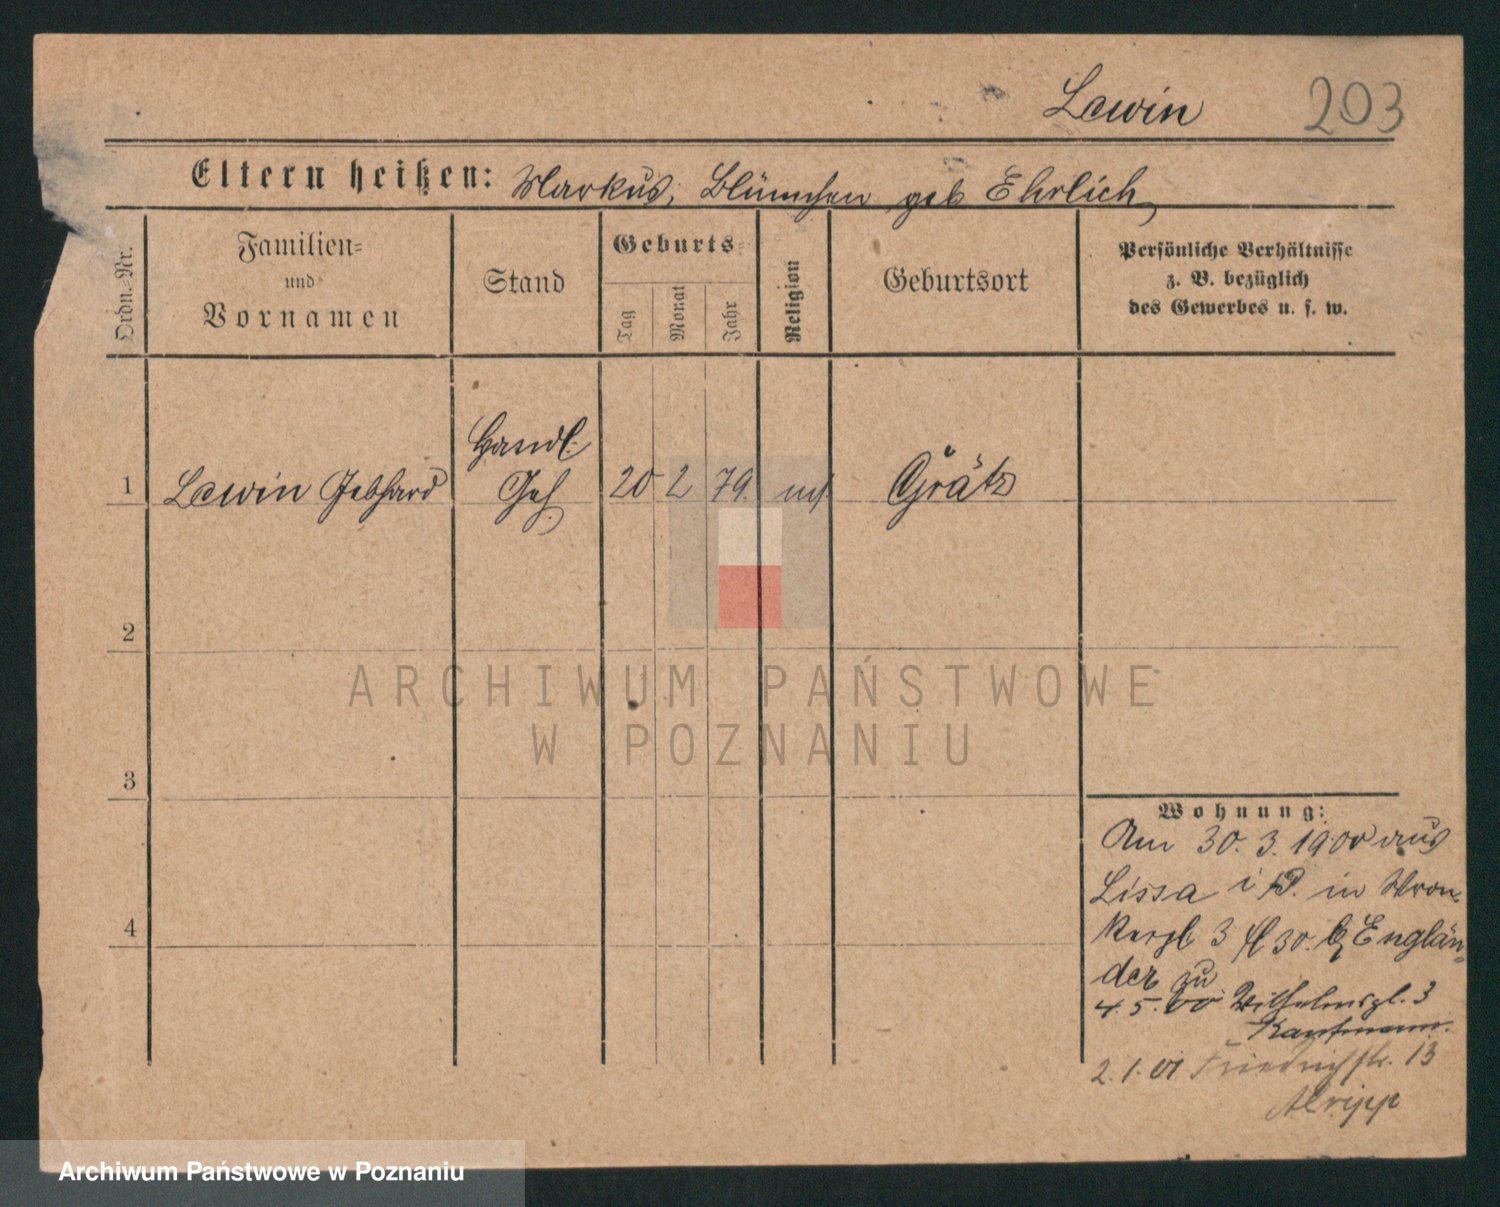 Lewin 203
Eltern heißen: Markus, Blümchen geb Ehrlich
Ordn.=Nr.
Familien=
und
Vornamen
Stand
Geburts=
Tag
Monat
Jahr
Religion
Geburtsort
Persönliche Verhältnisse
z. B. bezüglich
des Gewerbes u. s. w.
1 Lewin Gebhard Handl. Geh. 20 2 79. Grätz
2
3
4
Wohnung:
Am 30. 3. 1900 aus
Lissa i P. in Wron-
kerpl 3 30. b Englän-
der zu
4. 5. 00 Wilhelmspl. 3
Kaufmann.
2. 1. 01 Friedrichstr. 13
ARCHIWUM PAŃSTWOWE
W POZNANIU
Archiwum Państwowe w Poznaniu